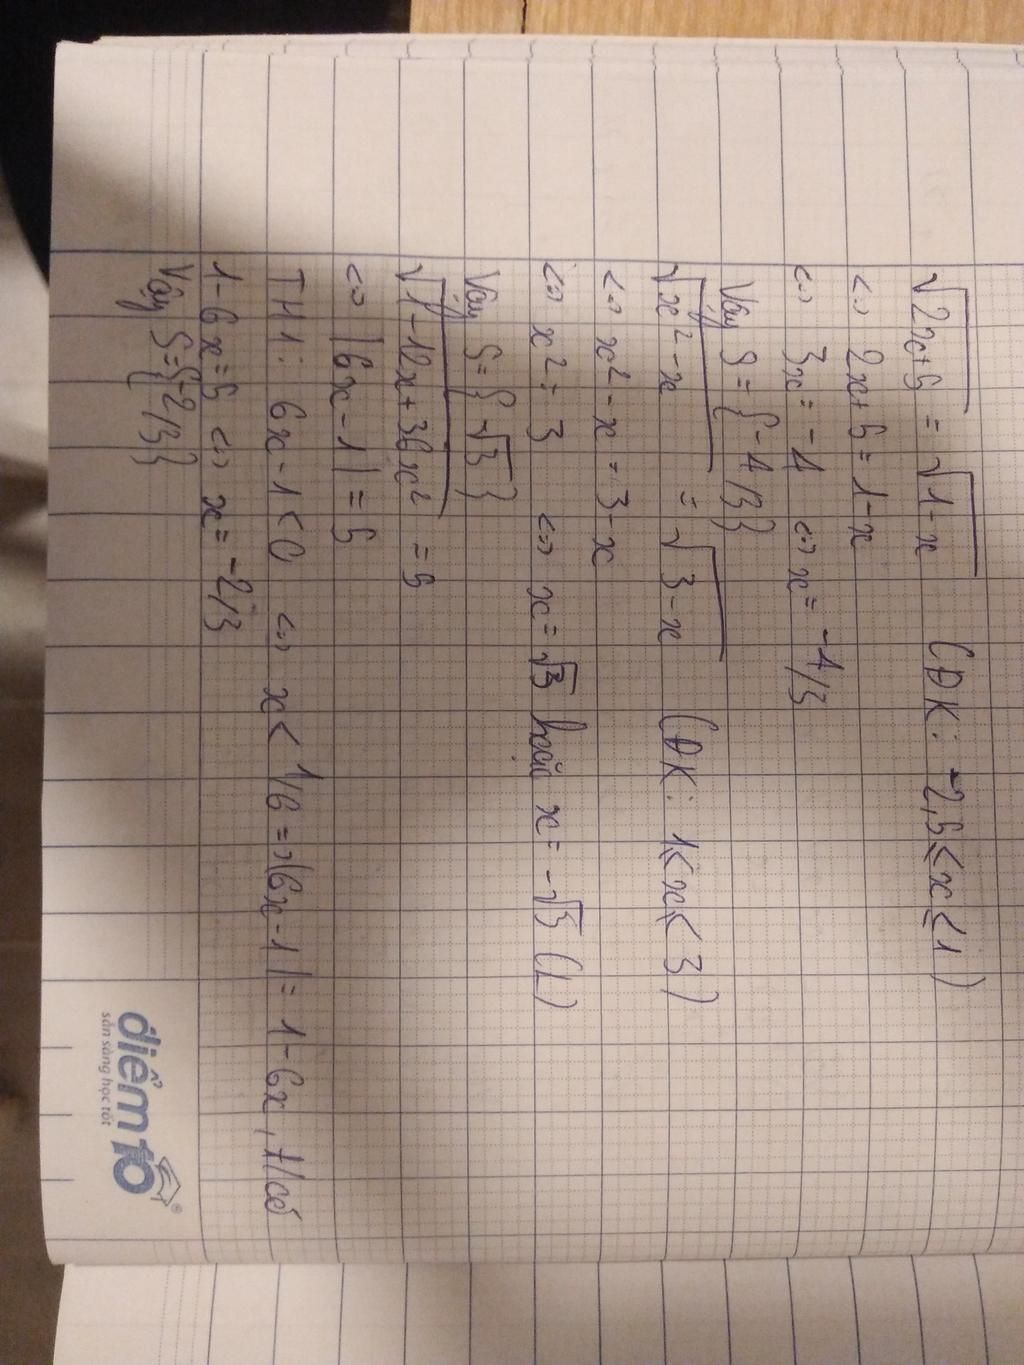 √2x+5 = √1-x (ĐK: -2,5 ≤ x ≤ 1)
<=> 2x+5 = 1-x
<=> 3x = -4 <=> x = -4/3
Vậy S = {-4/3}
√x²-x = √3-x (ĐK: 1 ≤ x ≤ 3)
<=> x²-x = 3-x
<=> x² = 3 <=> x = √3 hoặc x = -√3 (L)
Vậy S = {√3}
√1-12x+36x² = 5
<=> |6x-1| = 5
TH1: 6x-1<0 <=> x < 1/6 => |6x-1| = 1-6x, ta có
1-6x=5 <=> x = -2/3
Vậy S={-2/3}
điểm 10
sẵn sàng học tốt